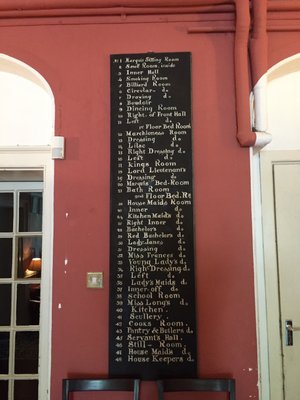 No 1 Marquis Sitting Room
3 Inner Hall
4 Smoking Room
5 Billiard Room
6 Circular do.
7 Drawing do.
8 Boudoir
9 Dineing Room
10 Right. of Front Hall
11 Left do
1st Floor Bed Room
12 Marchioness Room
13 Dressing do.
14 Lilac do.
15 Right Dressing do.
16 Left do.
17 Kings Room
18 Lord Lieutenant's
19 Dressing do.
20 Marquis Bed-Room
21 Bath Room
2nd Floor Bed. Rs
House Maids Room
Inner do.
Kitchen Maid's do.
Right Inner do.
Bachelor's do.
Red Bachelors do.
Lady Janes do.
Dressing do.
Miss Frances do.
Young Lady's do.
Right Dressing do.
Left do.
Lady's Maids do.
Inner off do.
School Room
Miss Long's do.
Kitchen.
Scullery.
Cooks Room.
Pantry & Butlers do.
Servant's Hall.
Still - Room.
House Maids do.
48 House Keepers do.